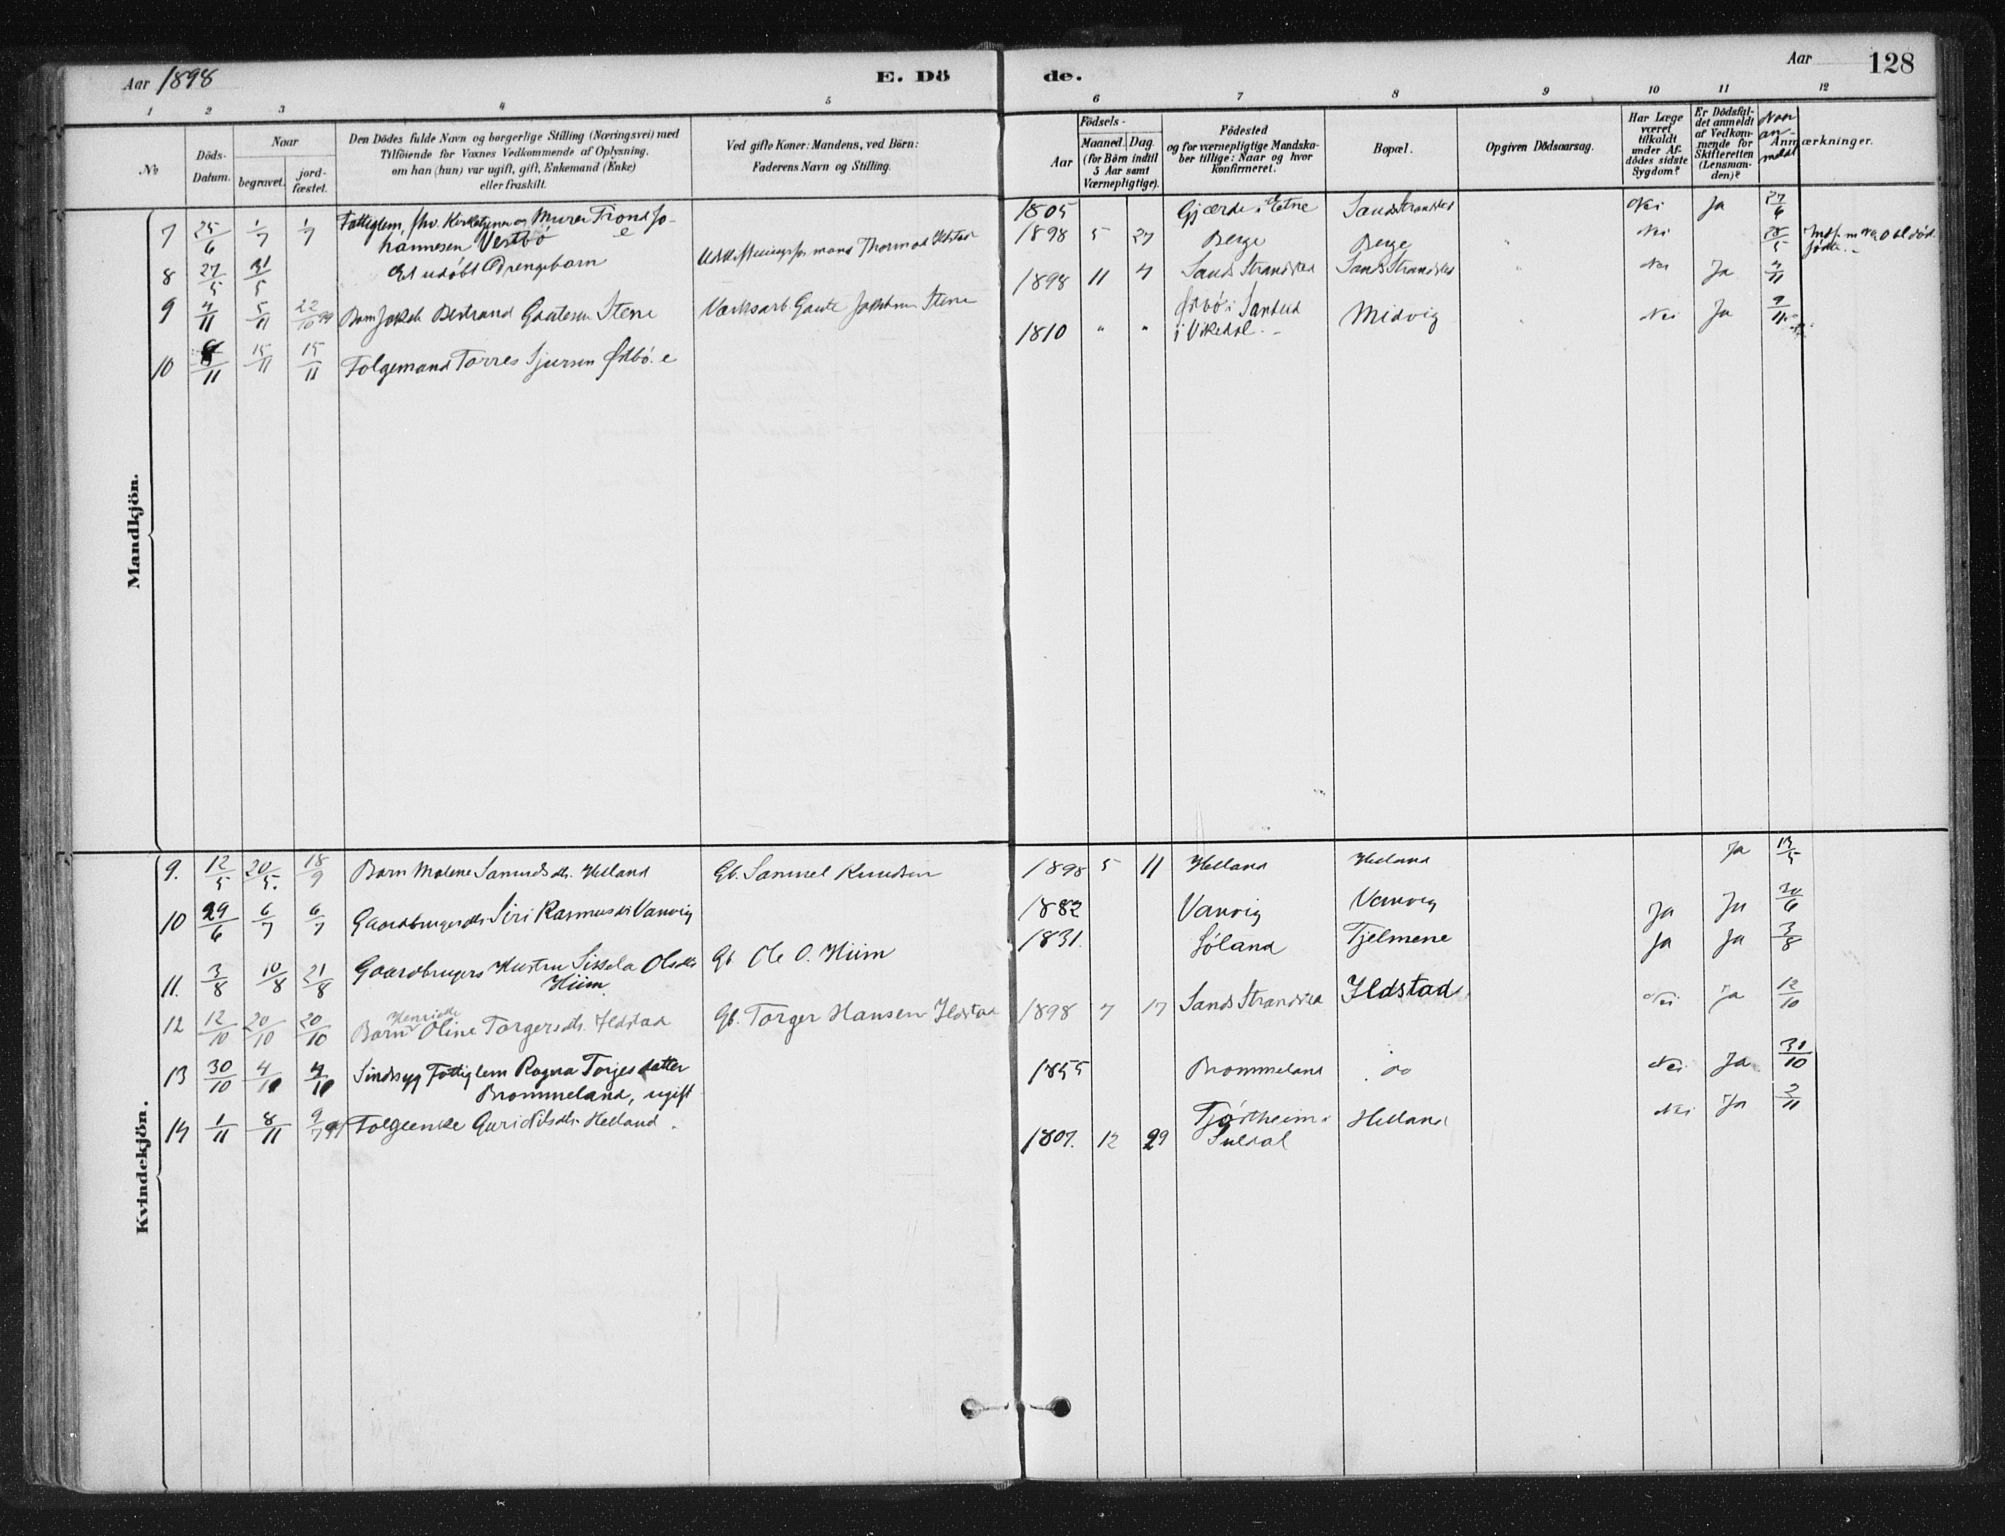 Aar 1898
E. Dö
de.
Aar
128
1 2 3 4 5 6 7 8 9 10 11 12
No
Döds-
Datum.
Naar
begravet.
jord-
fæstet.
Den Dödes fulde Navn og borgerlige Stilling (Næringsvei) med
Tilföiende for Voxnes Vedkommende af Oplysning,
om han (hun) var ugift, gift, Enkemand (Enke)
eller fraskilt.
Ved gifte Koner: Mandens, ved Börn:
Faderens Navn og Stilling.
Födsels-
Aar
Maaned. Dag.
(for Börn indtil
5 Aar samt
Værnepligtige).
Födested
og for værnepligtige Mandska-
ber tillige: Naar og hvor
konfirmeret.
Bopæl.
Opgiven Dödsaarsag.
Har Læge
været
tilkaldt
under Af-
dödes sidste
Sygdom?
Er Dödsfal-
det anmeldt
af Vedkom-
mende for
Skifteretten
(Lensman-
den)?
Naar
an-
meldt
Anmærkninger.
Mandkjön.
7 25/6 1/7 1/7 Fattiglem, fhv. Kirketjener og Murer Trond Jo-
hannesen Vestbø e
1805 Gjærde i Etne Sands Strandsted Nei Ja 27/6
8 27/5 31/5 Et udøbt Drengebarn Thormod Ilstad
1898 5 27 Berge Berge Nei 28/5
9 4/11 5/11 22/10 99 Barn Jakob Bertrand Gautesen Stene Værksarb. Gaute Jakobsen Stene
1898 11 4 Sands Strandsted Sands Strandsted Nei Ja 4/11
10 8/11 15/11 15/11 Folgemand Torres Sjursen Østbø. e
1810 " " Østbø i Sandeid
i Vikedal. Midvig Nei Ja 9/11
Kvindekjön.
9. 12/5 20/5. 18/9 Barn Malene Samuelsdtr. Helland Gb. Samuel Knudsen
1898 5 11 Helland Helland Ja 13/5
10 29/6 6/7 6/7 Gaardbrugerdtr. Siri Rasmusdtr Vanvig
1882 Vanvig Vanvig Ja Ja 30/6
11. 3/8 10/8 21/8 Gaardbrugers Hustru Sissela Olsdtr
Hiim Gb Ole O. Hiim
1831. Løland Tjelmene Ja Ja 3/8
12 12/10 20/10 20/10 Barn Henriette Oline Torgersdtr. Ildstad Gb. Torger Hansen Ildstad
1898 7 17 Sands Strandsted Ildstad Nei Ja 12/10
13 30/10 4/10 4/10 Sindssyg Fattiglem Ragna Torjesdatter
Brommeland, ugift
1855 Brommeland do Nei Ja. 31/10
14 1/11 8/11 9/7 99 Folgeenke Guri Nilsdtr. Helland.
1807. 12 29 Tjøstheim i
Suldal Helland Nei Ja 2/11